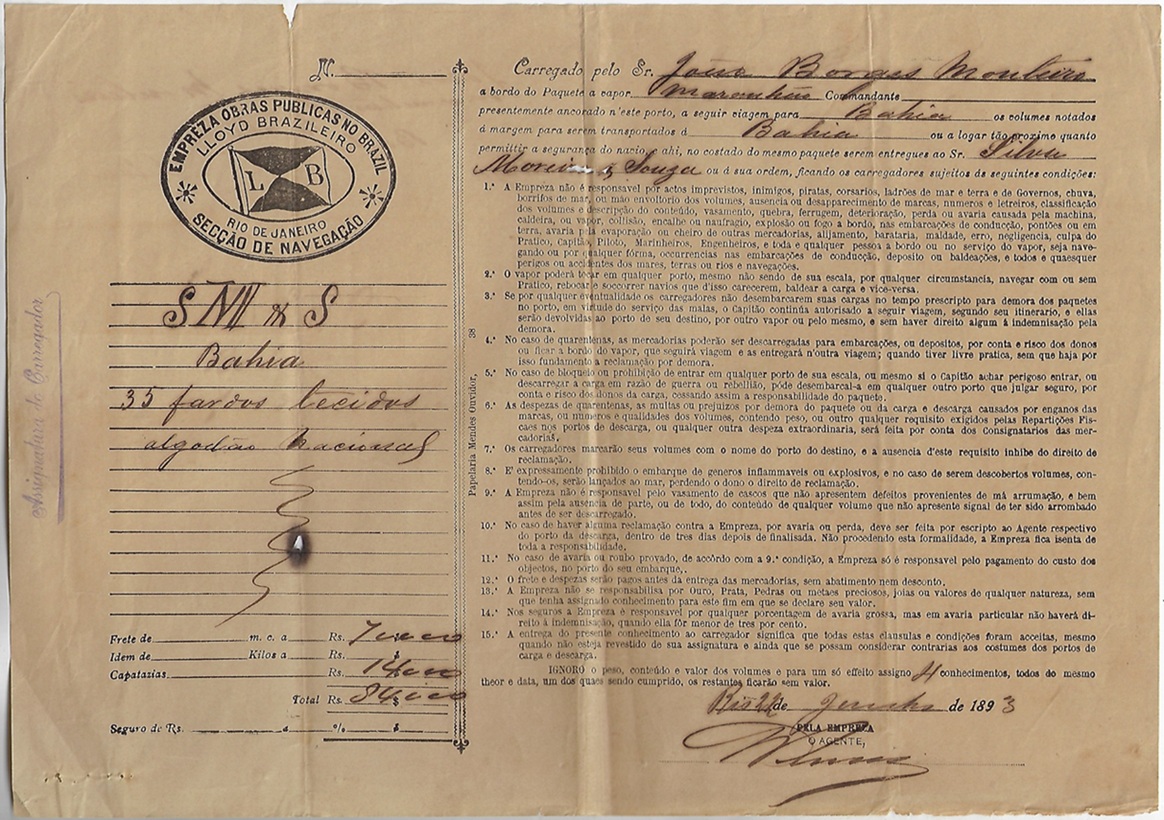 N.
EMPREZA OBRAS PUBLICAS NO BRAZIL
LLOYD BRAZILEIRO
L B
RIO DE JANEIRO
SECÇÃO DE NAVEGAÇÃO
S M & S
Bahia
35 fardos tecidos
algodão Nacional
Frete de m. c. a Rs.
Idem de Kilos a Rs. $
Capatazias. Rs. 14000
Total Rs. 84$000
Seguro de Rs. a % $
Assignatura do Carregador
Papelaria Mendes Ouvidor, 38
Carregado pelo Sr. João Borges Monteiro
a bordo do Paquete a vapor. Maranhão Commandante
presentemente ancorado n'este porto, a seguir viagem para Bahia os volumes notados
á margem para serem transportados á Bahia ou a logar tão proximo quanto
permittir a segurança do nacio, ahi, no costado do mesmo paquete serem entregues ao Sr. Silva
Moreira & Souza ou á sua ordem, ficando os carregadores sujeitos ás seguintes condições:
1.ª A Empreza não é responsavel por actos imprevistos, inimigos, piratas, corsarios, ladrões de mar e terra e de Governos, chuva,
borrifos de mar, ou mão envoltorio dos volumes, ausencia ou desapparecimento de marcas, numeros e letreiros, classificação
dos volumes e descripção do conteúdo, vasamento, quebra, ferrugem, deterioração, perda ou avaria causada pela machina,
caldeira, ou vapor, collisão, encalhe ou naufragio, explosão ou fogo a bordo, nas embarcações de conducção, pontões ou em
terra, avaria pela evaporação ou cheiro de outras mercadorias, alijamento, barataria, maldade, erro, negligencia, culpa do
Pratico, Capitão, Piloto, Marinheiros, Engenheiros, e toda e qualquer pessoa a bordo ou no serviço do vapor, seja nave-
gando ou por qualquer fórma, occurrencias nas embarcações de conducção, deposito ou baldeações, e todos e quaesquer
perigos ou accidentes dos mares, terras ou rios e navegações.
2.ª O vapor poderá tocar em qualquer porto, mesmo não sendo de sua escala, por qualquer circumstancia, navegar com ou sem
Pratico, rebocar e soccorrer navios que d'isso carecerem, baldear a carga e vice-versa.
3.ª Se por qualquer eventualidade os carregadores não desembarcarem suas cargas no tempo prescripto para demora dos paquetes
no porto, em virtude do serviço das malas, o Capitão continúa autorisado a seguir viagem, segundo seu itinerario, e ellas
serão devolvidas ao porto de seu destino, por outro vapor ou pelo mesmo, e sem haver direito algum á indemnisação pela
demora.
4.ª No caso de quarentenas, as mercadorias poderão ser descarregadas para embarcações, ou depositos, por conta e risco dos donos
ou ficar a bordo do vapor, que seguirá viagem e as entregará n'outra viagem; quando tiver livre pratica, sem que haja por
isso fundamento a reclamação por demora.
5.ª No caso de bloqueio ou prohibição de entrar em qualquer porto de sua escala, ou mesmo si o Capitão achar perigoso entrar, ou
descarregar a carga em razão de guerra ou rebellião, póde desembarcal-a em qualquer outro porto que julgar seguro, por
conta e risco dos donos da carga, cessando assim a responsabilidade do paquete.
6.ª As despezas de quarentenas, as multas ou prejuizos por demora do paquete ou da carga e descarga causados por enganos das
marcas, ou numeros e qualidades dos volumes, contendo peso, ou outro qualquer requisito exigidos pelas Repartições Fis-
caes nos portos de descarga, ou qualquer outra despeza extraordinaria, será feita por conta dos Consignatarios das mer-
cadorias.
7.ª Os carregadores marcarão seus volumes com o nome do porto do destino, e a ausencia d'este requisito inhibe do direito de
reclamação.
8.ª E' expressamente prohibido o embarque de generos inflammaveis ou explosivos, e no caso de serem descobertos volumes, con-
tendo-os, serão lançados ao mar, perdendo o dono o direito de reclamação.
9.ª A Empreza não é responsavel pelo vasamento de cascos que não apresentem defeitos provenientes de má arrumação, e bem
assim pela ausencia de parte, ou de todo, do conteúdo de qualquer volume que não apresente signal de ter sido arrombado
antes de ser descarregado.
10.ª No caso de haver alguma reclamação contra a Empreza, por avaria ou perda, deve ser feita por escripto ao Agente respectivo
do porto da descarga, dentro de tres dias depois de finalisada. Não procedendo esta formalidade, a Empreza fica isenta de
toda a responsabilidade.
11.ª No caso de avaria ou roubo provado, de accôrdo com a 9.ª condição, a Empreza só é responsavel pelo pagamento do custo dos
objectos, no porto do seu embarque.
12.ª O frete e despezas serão pagos antes da entrega das mercadorias, sem abatimento nem desconto.
13.ª A Empreza não se responsabilisa por Ouro, Prata, Pedras ou metaes preciosos, joias ou valores de qualquer natureza, sem
que tenha assignado conhecimento para este fim em que se declare seu valor.
14.ª Nos seguros a Empreza é responsavel por qualquer porcentagem de avaria grossa, mas em avaria particular não haverá di-
reito á indemnisação, quando ella fôr menor de tres por cento.
15.ª A entrega do presente conhecimento ao carregador significa que todas estas clausulas e condições foram acceitas, mesmo
quando não esteja revestido de sua assignatura e ainda que se possam considerar contrarias aos costumes dos portos de
carga e descarga.
IGNORO o peso, conteúdo e valor dos volumes e para um só effeito assigno 4 conhecimentos, todos do mesmo
theor e data, um dos quaes sendo cumprido, os restantes ficarão sem valor.
Rio de Junho de 1893
PELA EMPREZA
O AGENTE,